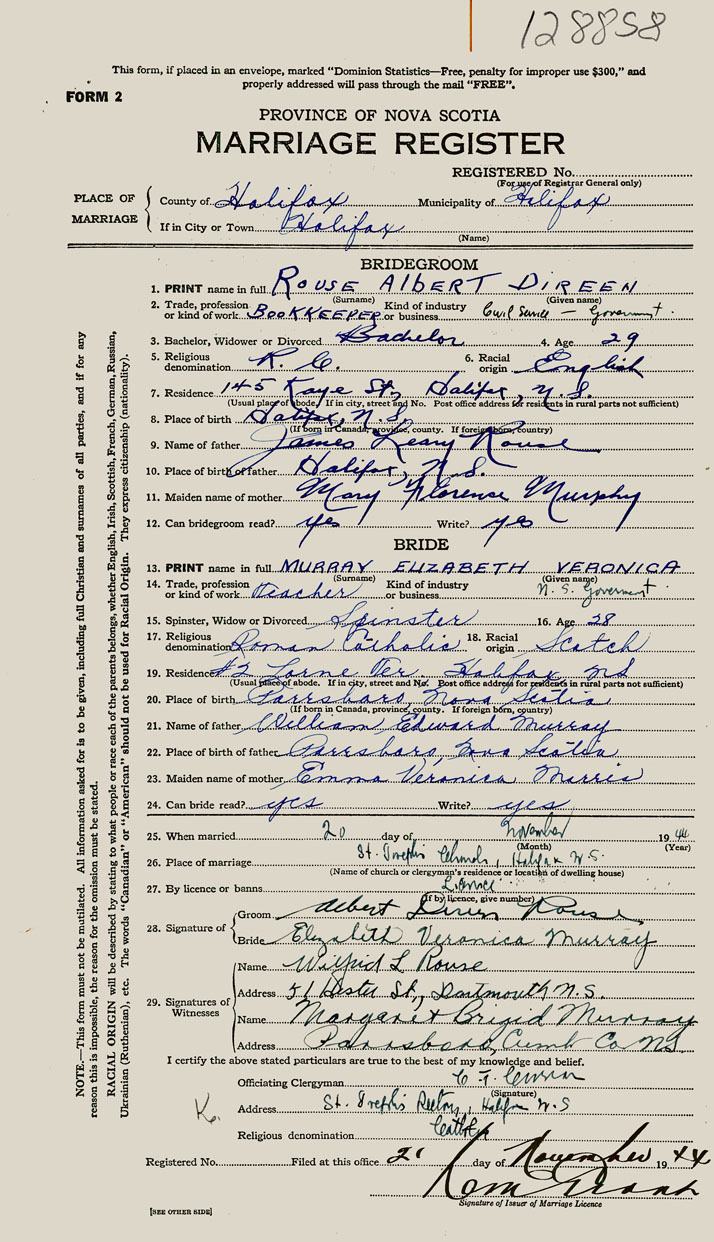 128858
This form, if placed in an envelope, marked "Dominion Statistics—Free, penalty for improper use $300," and
properly addressed will pass through the mail "FREE".
FORM 2
PROVINCE OF NOVA SCOTIA
MARRIAGE REGISTER
REGISTERED No.
(For use of Registrar General only)
PLACE OF MARRIAGE
County of Halifax Municipality of Halifax
If in City or Town Halifax
(Name)
BRIDEGROOM
1. PRINT name in full ROUSE ALBERT DIREEN
(Surname) (Given name)
2. Trade, profession or kind of work BOOKKEEPER Kind of industry or business Civil Service — Government.
3. Bachelor, Widower or Divorced Bachelor 4. Age 29
5. Religious denomination R. C. 6. Racial origin English
7. Residence 145 Kaye St., Halifax, N.S.
(Usual place of abode. If in city, street and No. Post office address for residents in rural parts not sufficient)
8. Place of birth Halifax, N.S.
(If born in Canada, province, county. If foreign born, country)
9. Name of father James Leary Rouse
10. Place of birth of father Halifax, N.S.
11. Maiden name of mother Mary Florence Murphy
12. Can bridegroom read? yes Write? yes
BRIDE
13. PRINT name in full MURRAY ELIZABETH VERONICA
(Surname) (Given name)
14. Trade, profession or kind of work Teacher Kind of industry or business N.S. Government
15. Spinster, Widow or Divorced Spinster 16. Age 28
17. Religious denomination Roman Catholic 18. Racial origin Scotch
19. Residence #2 Lorne Ter. Halifax NS
(Usual place of abode. If in city, street and No. Post office address for residents in rural parts not sufficient)
20. Place of birth Parrsboro, Nova Scotia
(If born in Canada, province, county. If foreign born, country)
21. Name of father William Edward Murray
22. Place of birth of father Parrsboro, Nova Scotia
23. Maiden name of mother Emma Veronica
24. Can bride read? yes Write? yes
25. When married 20 day of November 1944
(Month) (Year)
26. Place of marriage St. Joseph's Church, Halifax N.S.
(Name of church or clergyman's residence or location of dwelling house)
27. By licence or banns Licence
(If by licence, give number)
28. Signature of
Groom Albert Direen Rouse
Bride Elizabeth Veronica Murray
29. Signatures of Witnesses
Name Wilfrid L Rouse
Address 51 St., Dartmouth N.S.
Name Margaret Brigid Murray
Address Parrsboro, Cumb Co NS.
I certify the above stated particulars are true to the best of my knowledge and belief.
Officiating Clergyman
(Signature)
Address St. Joseph's Rectory, Halifax N.S
K.
Religious denomination
Registered No. Filed at this office 21 day of November 1944
Signature of Issuer of Marriage Licence
[SEE OTHER SIDE]
NOTE.—This form must not be mutilated. All information asked for is to be given, including full Christian and surnames of all parties, and if for any
reason this is impossible, the reason for the omission must be stated.
RACIAL ORIGIN will be described by stating to what people or race each of the parents belongs, whether English, Irish, Scottish, French, German, Russian,
Ukrainian (Ruthenian), etc. The words "Canadian" or "American" should not be used for Racial Origin. They express citizenship (nationality).